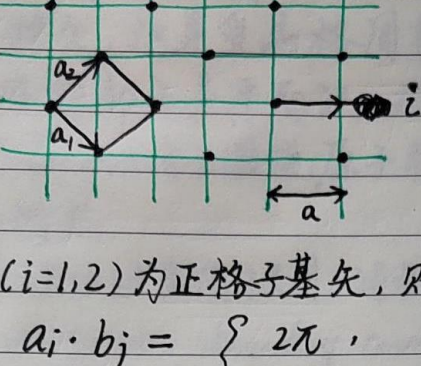 a₂
i
a₁
a
(i=1,2)为正格子基矢,则
aᵢ·bⱼ = { 2π,